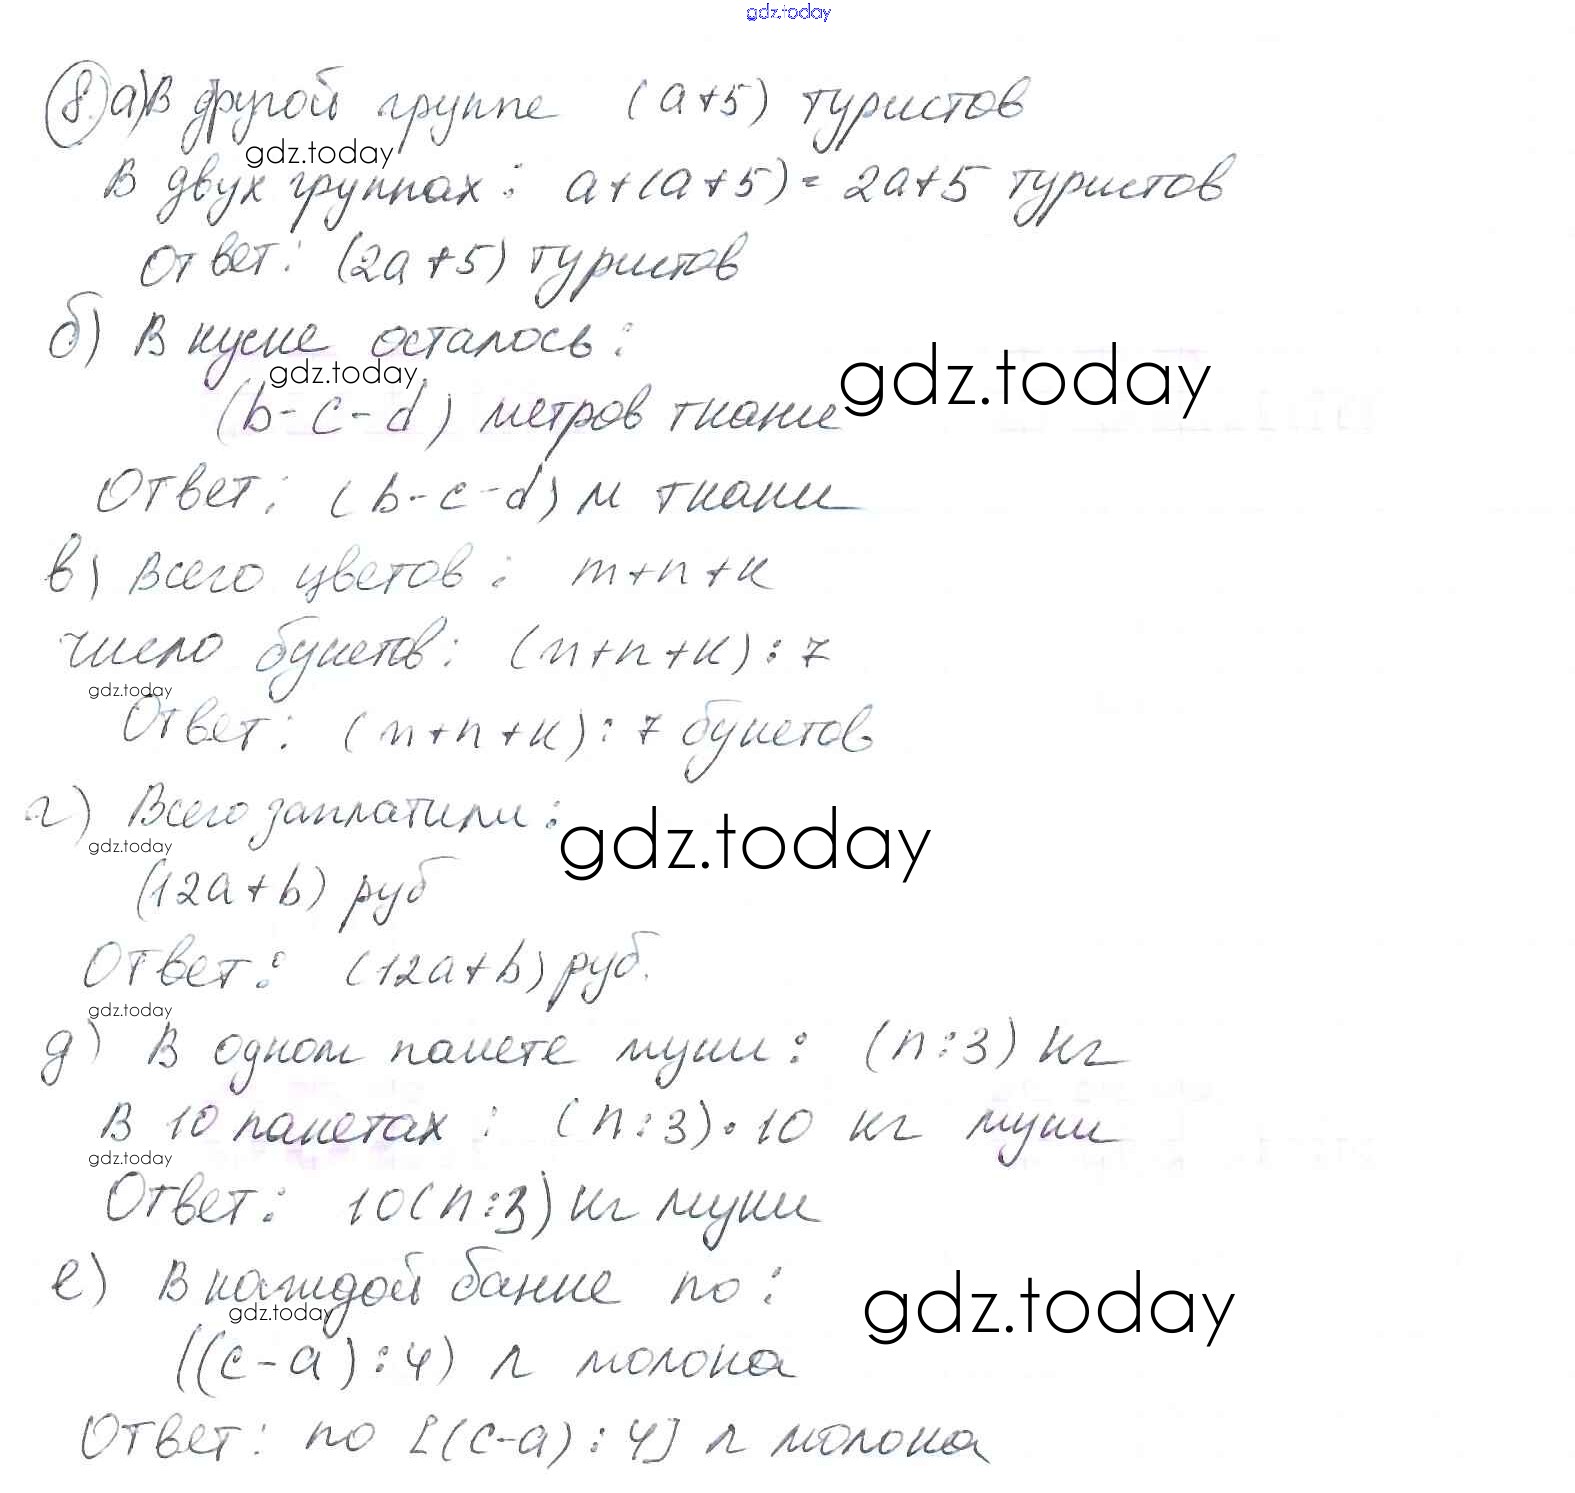 gdz.today
8. а) В другой группе (a+5) туристов
gdz.today
В двух группах: a+(a+5)=2a+5 туристов
Ответ: (2a+5) туристов
б) В куске осталось:
gdz.today
gdz.today
(b-c-d) метров ткани
Ответ: (b-c-d) м ткани
в) Всего цветов: m+n+k
Число букетов: (m+n+k):7
gdz.today
Ответ: (m+n+k):7 букетов
г) Всего заплатили:
gdz.today
gdz.today
(12a+b) руб
Ответ: (12a+b) руб.
gdz.today
д) В одном пакете муки: (n:3) кг
В 10 пакетах: (n:3)·10 кг муки
gdz.today
Ответ: 10(n:3) кг муки
е) В каждой банке по:
gdz.today
gdz.today
((c-a):4) л молока
Ответ: по [(c-a):4] л молока